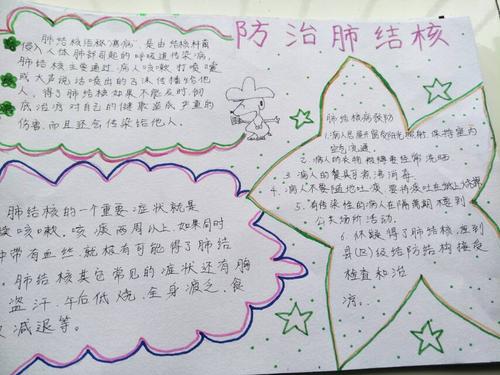 防治肺结核
肺结核结核"痨病",是由结核杆菌
侵入人体肺部引起的呼吸道传染病,
肺结核主要通过病人咳嗽、打喷嚏
或大声说话喷出的飞沫传播给他
人,得了肺结核如果不能及时、彻
底治疗对自己的健康造成严重的
伤害,而且还会传染给他人。
肺结核的一个重要症状就是
咳嗽、咳痰两周以上,如果同时
中带有血丝,就极有可能得了肺结
肺结核其它常见的症状还有胸
盗汗、午后低烧、全身疲乏、食
减退等。
肺结核病预防
1.病人居室
空气流通
2.病人的衣物被褥要经常洗晒
3.病人的餐具要煮沸消毒.
4.病人不要随地吐痰,要将痰吐在纸上
5.有传染性的病人在隔离期
公共场所活动.
6.怀疑得了肺结核,应到
县(区)级结防结构接受
检查和治
疗.